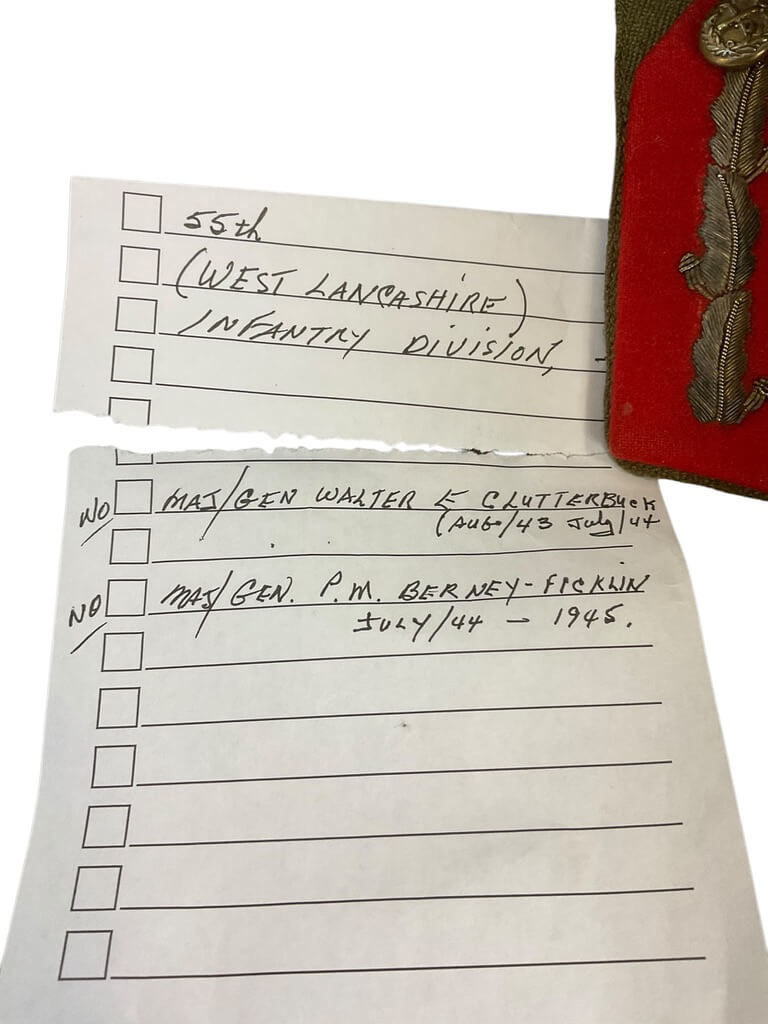 55th
(WEST LANCASHIRE)
INFANTRY DIVISION, -
NO MAJ/GEN WALTER E CLUTTERBUCK
(AUG/43 July/44
NO MAJ/GEN. P.M. BERNEY-FICKLIN
JULY/44 - 1945.